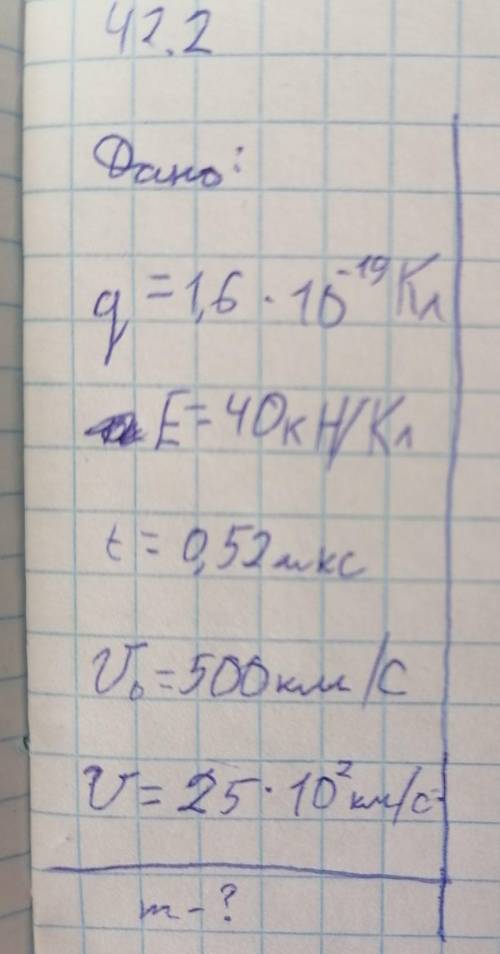 42.2
Дано:
q = 1,6 · 10⁻¹⁹ Кл
E = 40 кН/Кл
t = 0,52 мкс
v₀ = 500 км/с
v = 25 · 10² км/с
m - ?